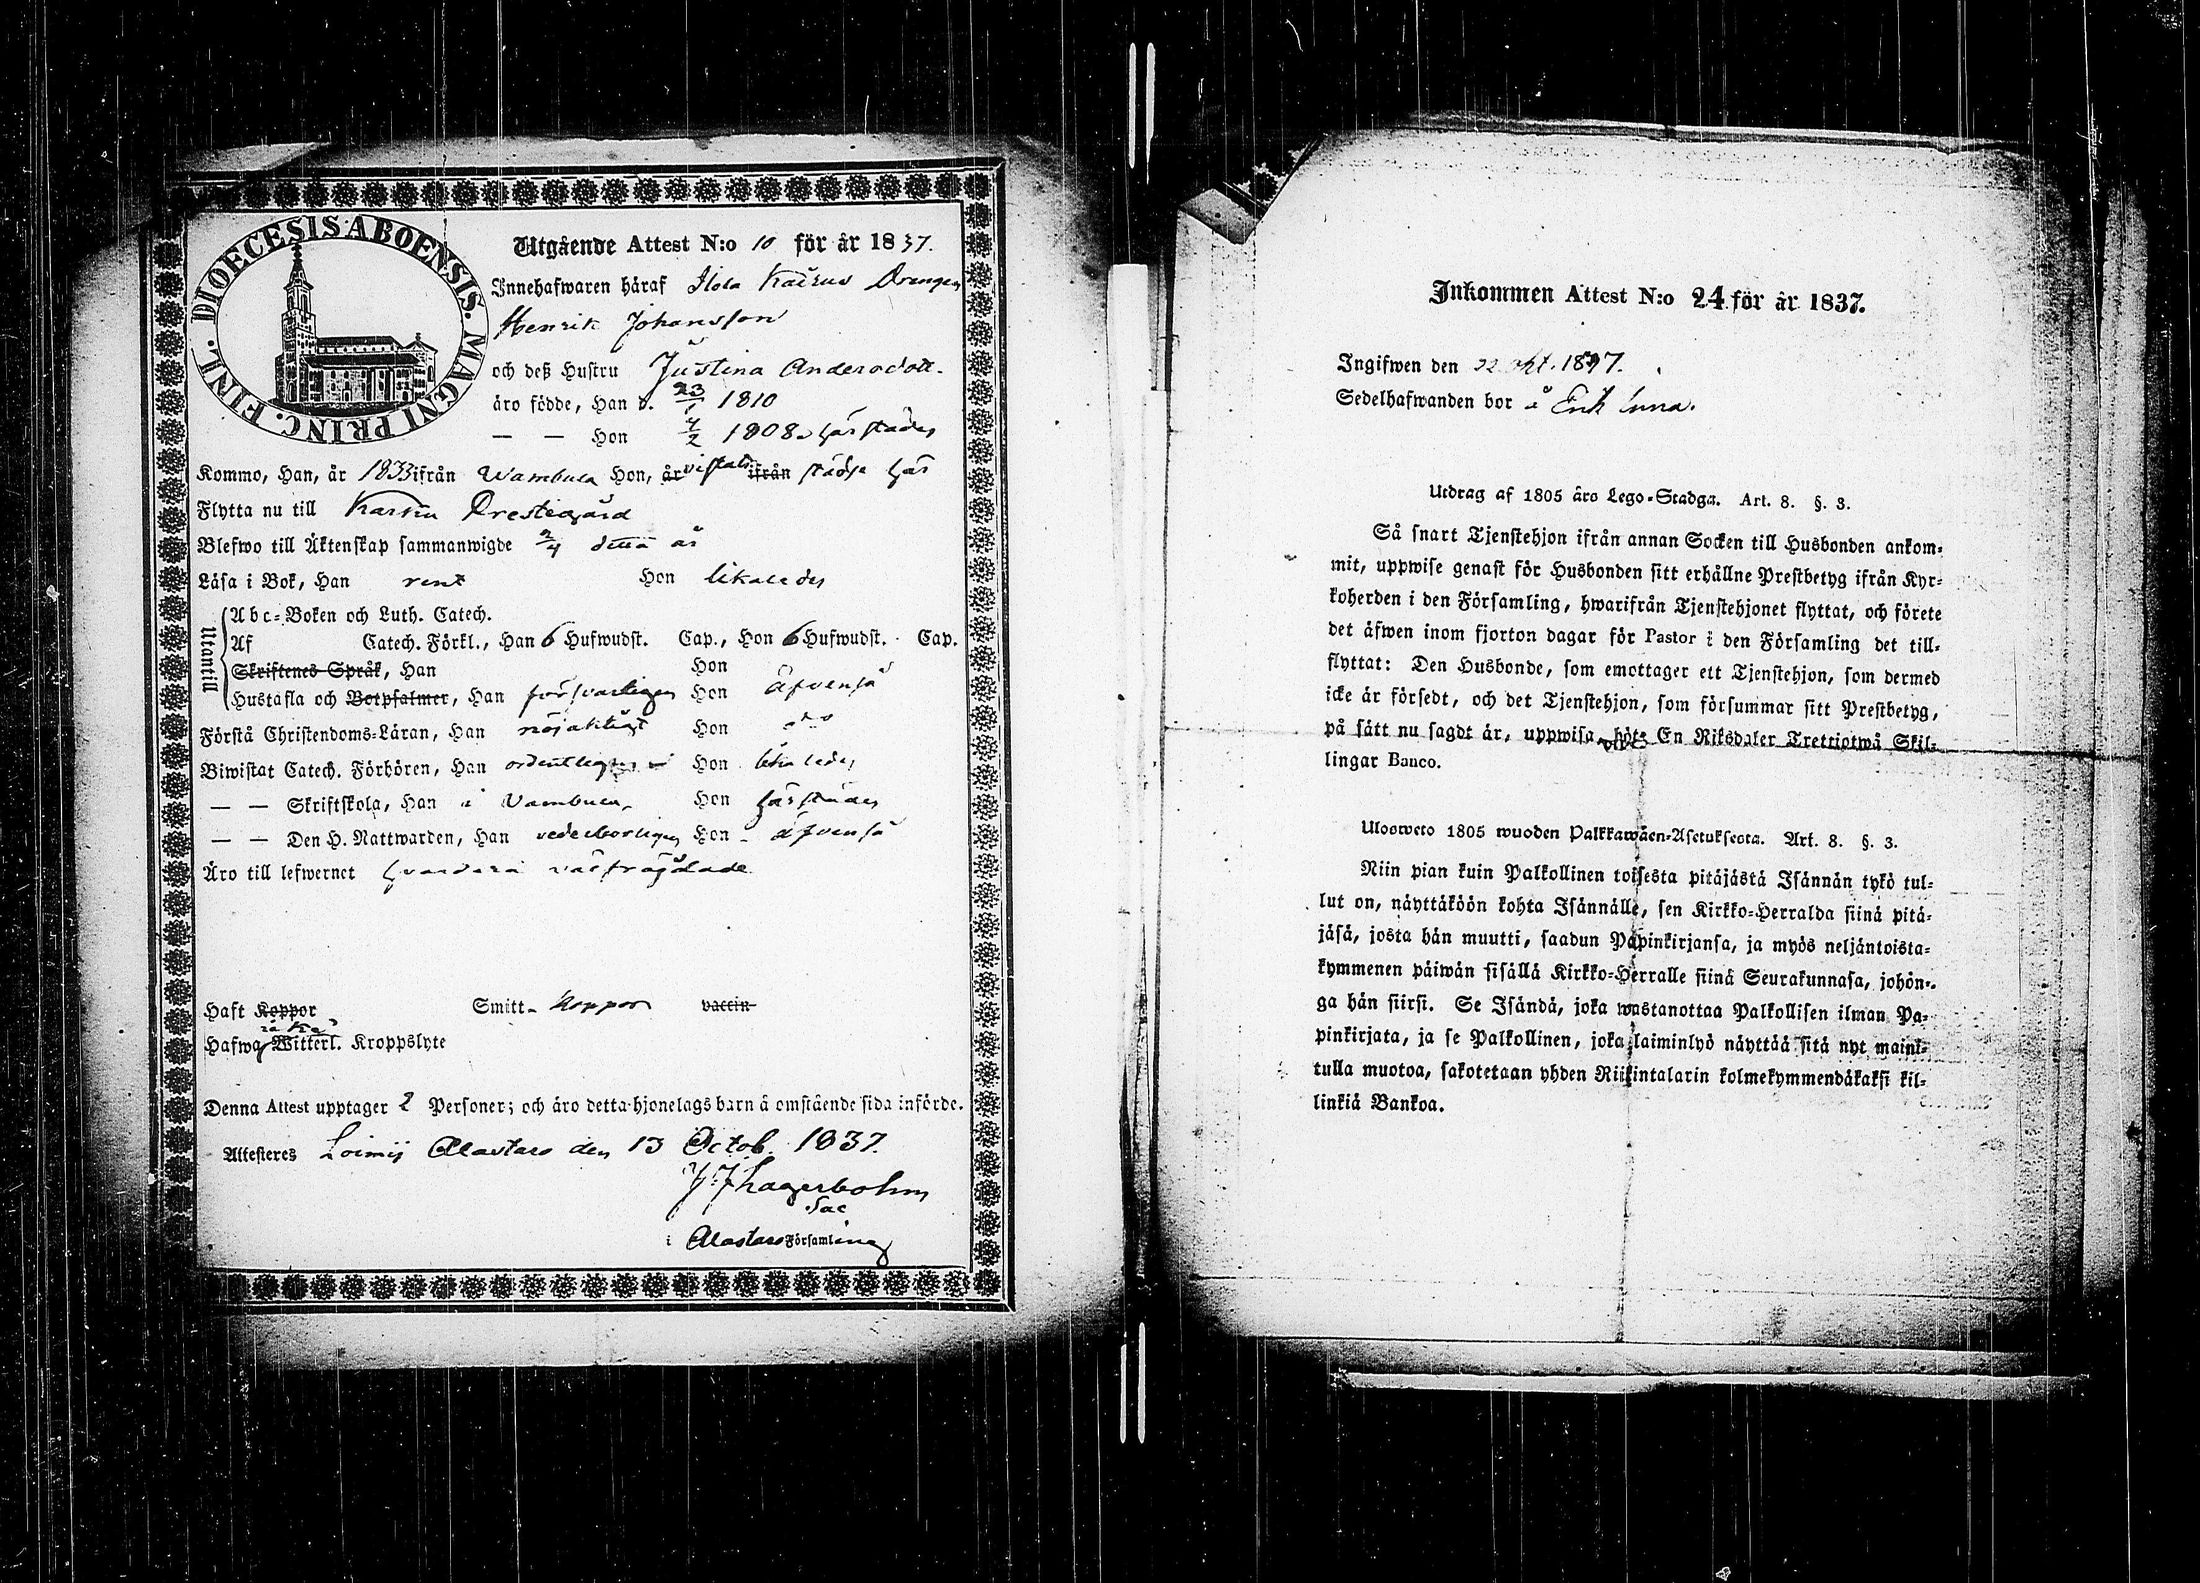 DIOECESIS ABOENSIS. MAGNI PRINC. FINL.
Utgående Attest N:o 10 för år 1837.
Innehafwaren häraf Drengen
Henrik Johansson
och deß Hustru Justina Andersdott.
äro födde, Han d. 23/1 1810
— — Hon 4/2 1808 härstädes
Kommo, Han, år 1833 ifrån Wambula Hon, år vistats ifrån städse här
Flytta nu till Karkku Prestegård
Blefwo till Äktenskap sammanwigde 2/4 detta år
Läsa i Bok, Han rent Hon likaledes
Utantill
Abc-Boken och Luth. Catech.
Af Catech. Förkl., Han 6 Hufwudst. Cap., Hon 6 Hufwudst. Cap.
Skriftenes Språk, Han Hon
Hustafla och Botpsalmer, Han försvarligen Hon äfvenså
Förstå Christendoms-Läran, Han nöjaktigt Hon d:o
Biwistat Catech. Förhören, Han ordentligen Hon likaledes
— — Skriftskola, Han i Vambula Hon härstädes
— — Den H. Nattwarden, Han vederbörligen Hon äfvenså
Äro till lefwernet hvardera välfräjdade
Haft Koppor Smitt- koppor vaccin
Hafwa Witterl. Kroppslyte
Denna Attest upptager 2 Personer; och äro detta hjonelags barn å omstående sida införde.
Attesteras Loimijoki Alastaro den 13 Octob. 1837.
Sac
i Alastaro Församling
Inkommen Attest N:o 24 för år 1837.
Ingifwen den 22 okt. 1837.
Sedelhafwanden bor å Erik
Utdrag af 1805 års Lego-Stadga. Art. 8. §. 3.
Så snart Tjenstehjon ifrån annan Socken till Husbonden ankom-
mit, uppwise genast för Husbonden sitt erhållne Prestbetyg ifrån Kyr-
koherden i den Församling, hwarifrån Tjenstehjonet flyttat, och förete
det äfwen inom fjorton dagar för Pastor i den Församling det till-
flyttat: Den Husbonde, som emottager ett Tjenstehjon, som dermed
icke är försedt, och det Tjenstehjon, som försummar sitt Prestbetyg,
på sätt nu sagdt är, uppwisa, böte En Riksdaler Trettiotwå Skil-
lingar Banco.
Uloswето 1805 wuoden Palkkawäen-Asetuksesta. Art. 8. §. 3.
Niin pian kuin Palkollinen toisesta pitäjästä Isännän tykö tul-
lut on, näyttäköön kohta Isännälle, sen Kirkko-Herralda siinä pitä-
jäsä, josta hän muutti, saadun Papinkirjansa, ja myös neljäntoista-
kymmenen päiwän sisällä Kirkko-Herralle siinä Seurakunnasa, johön-
ga hän siirsi. Se Isändä, joka wastanottaa Palkollisen ilman Pa-
pinkirjata, ja se Palkollinen, joka laiminlyö näyttää sitä nyt maini-
tulla muotoa, sakotetaan yhden Riikintalarin kolmekymmendäkaksi kil-
linkiä Bankoa.